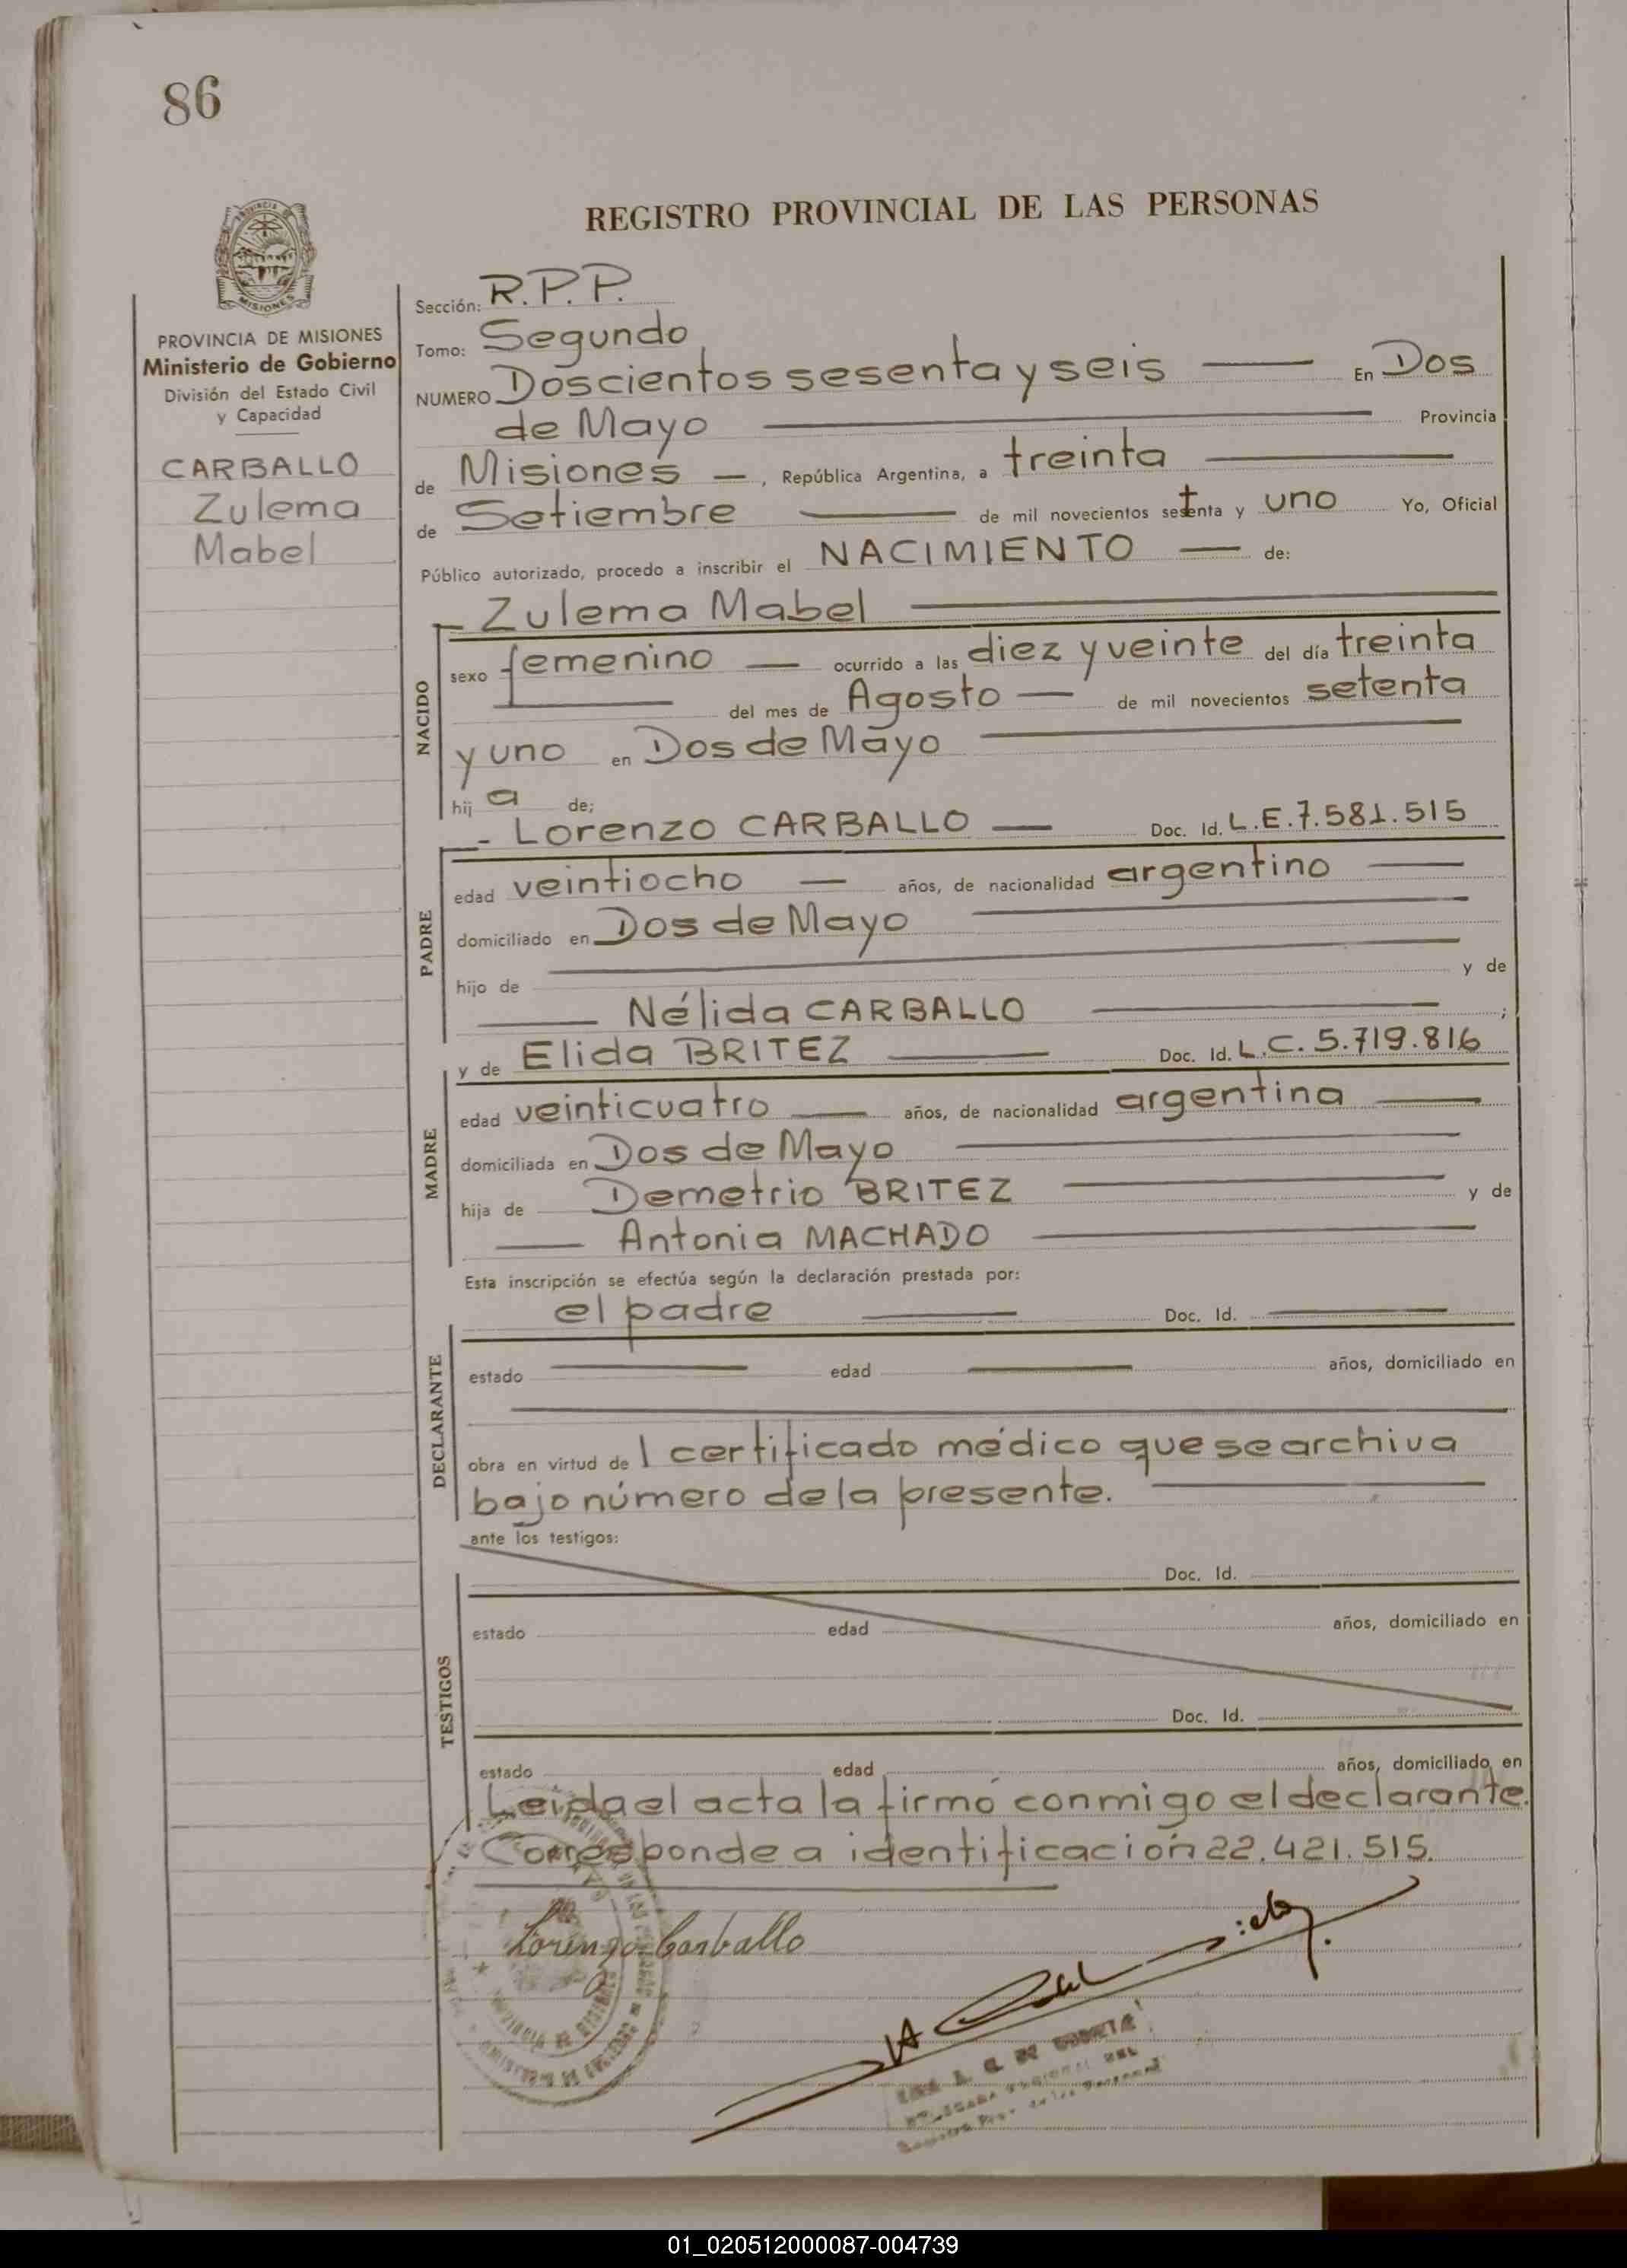 86
REGISTRO PROVINCIAL DE LAS PERSONAS
PROVINCIA DE MISIONES
Ministerio de Gobierno
División del Estado Civil
y Capacidad
CARBALLO
Zulema
Mabel
Sección: R.P.P.
Tomo: Segundo
NUMERO Doscientos sesenta y seis — En Dos
de Mayo — Provincia
de Misiones —, República Argentina, a treinta —
de Setiembre — de mil novecientos setenta y uno Yo, Oficial
Público autorizado, procedo a inscribir el NACIMIENTO — de:
- Zulema Mabel —
NACIDO
sexo femenino — ocurrido a las diez y veinte del día treinta
— del mes de Agosto — de mil novecientos setenta
y uno en Dos de Mayo —
hij a de;
- Lorenzo CARBALLO — Doc. Id. L.E.7.581.515
PADRE
edad veintiocho — años, de nacionalidad argentino —
domiciliado en Dos de Mayo —
hijo de — y de
— Nélida CARBALLO — ;
y de Elida BRITEZ — Doc. Id. L.C. 5.719.816
MADRE
edad veinticuatro — años, de nacionalidad argentina —
domiciliada en Dos de Mayo —
hija de Demetrio BRITEZ — y de
— Antonia MACHADO —
Esta inscripción se efectúa según la declaración prestada por:
el padre — Doc. Id. —
DECLARANTE
estado — edad — años, domiciliado en
obra en virtud de l certificado médico que se archiva
bajo número de la presente. —
ante los testigos:
Doc. Id.
TESTIGOS
estado edad años, domiciliado en
Doc. Id.
estado edad años, domiciliado en
Leida el acta la firmó conmigo el declarante.
Corresponde a identificación 22.421.515.
Lorenzo Carballo
01_020512000087-004739